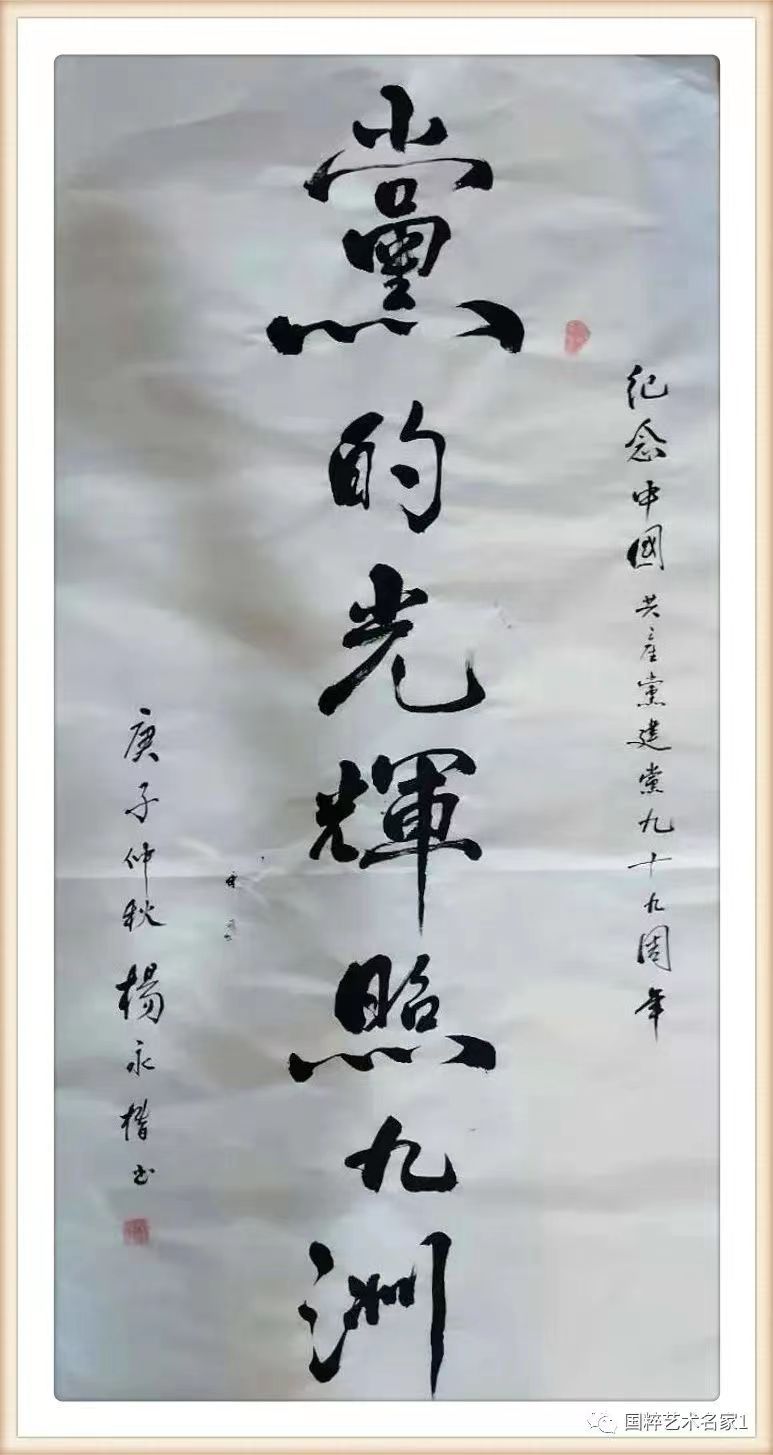 纪念中國共產黨建黨九十九周年
黨的光輝照九洲
庚子仲秋楊永楷书
国粹艺术名家1